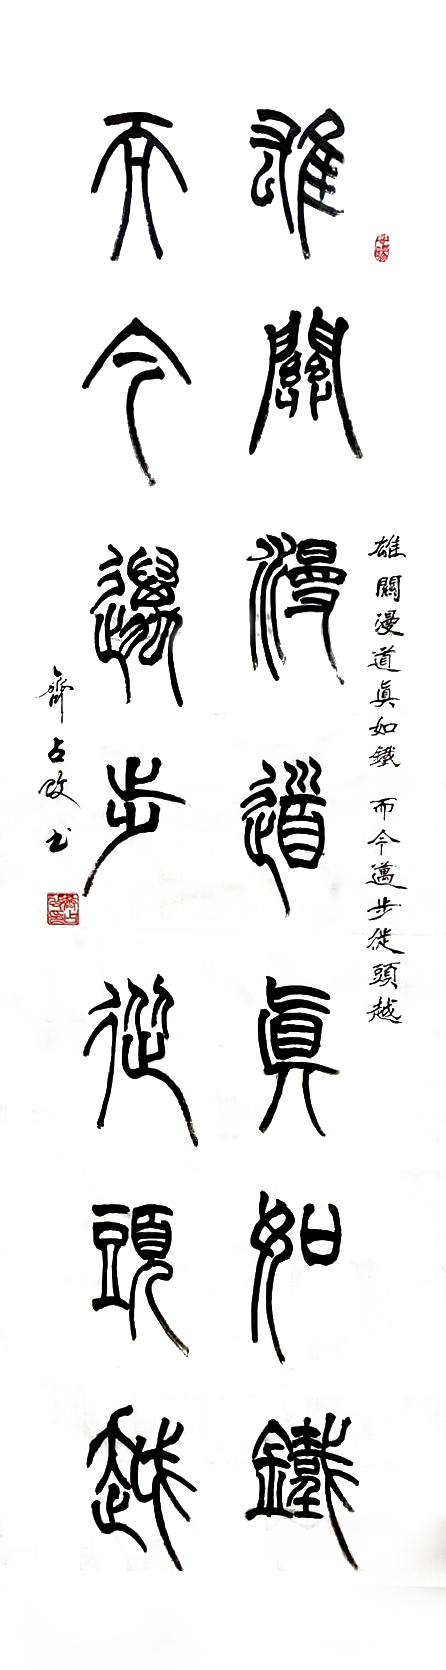 雄關漫道真如鐵
而今邁步從頭越
雄關漫道真如鐵 而今邁步從頭越
齊占改书